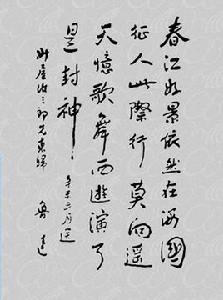 春江好景依然在海國
征人此際行莫向遙
天憶歌舞西遊演了
是封神
辛未三月送
升屋治三郎兄東歸
魯迅